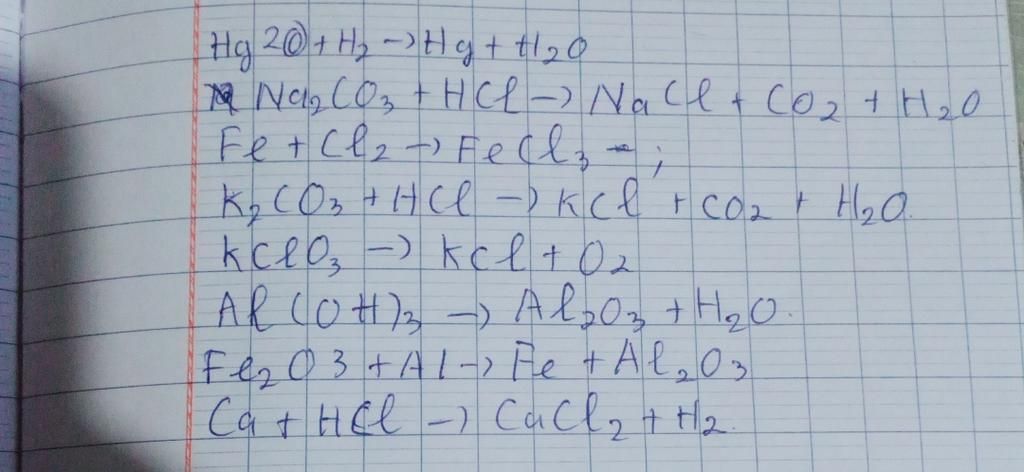 Hg2O + H2 -> Hg + H2O
Na2CO3 + HCl -> NaCl + CO2 + H2O
Fe + Cl2 -> FeCl3 - ;
K2CO3 + HCl -> KCl + CO2 + H2O.
KClO3 -> KCl + O2
Al(OH)3 -> Al2O3 + H2O.
Fe2O3 + Al -> Fe + Al2O3
Ca + HCl -> CaCl2 + H2.